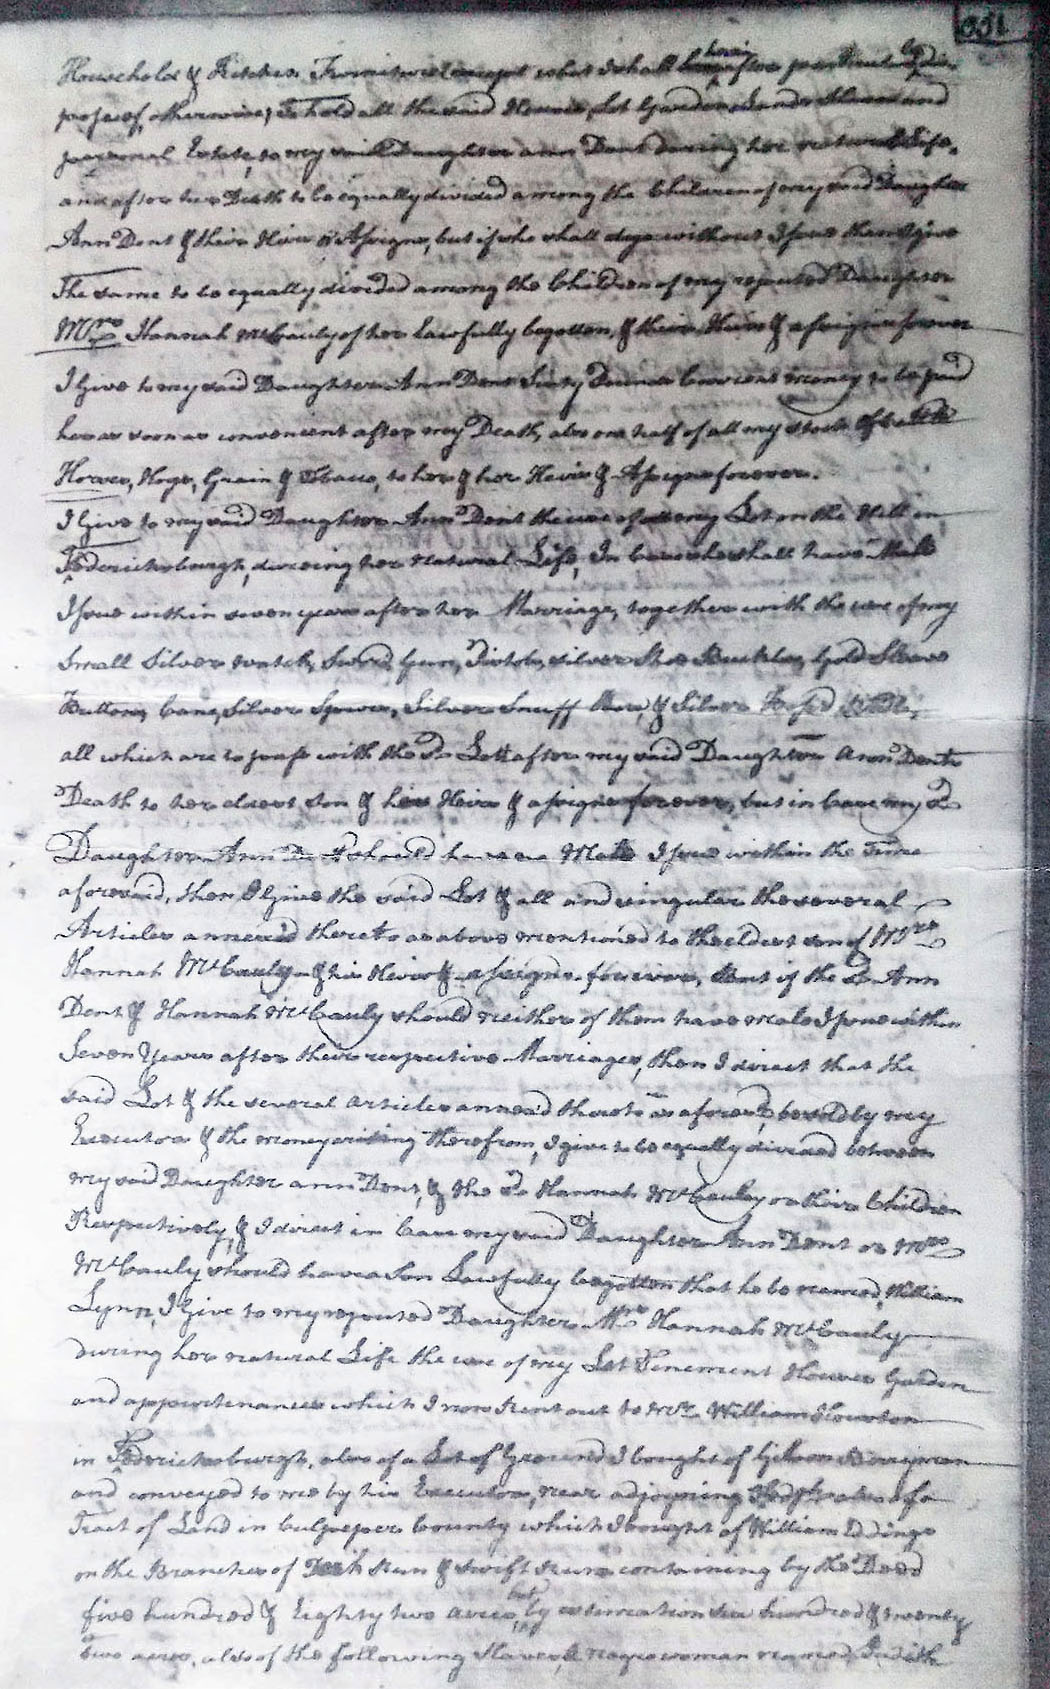 331
Household & Kitchen Furniture except what I shall herein after particularly dis
pose of otherwise; To hold all the said Houses, Lot Garden Lands Slaves and
personal Estate, to my said Daughter Ann Dent during her natural Life,
and after her Death to be equally divided among the Children of my said Daughter
Ann Dent & their Heirs & Assigns, but if she shall dye without Issue then I give
The same to be equally divided among the Children of my reputed Daughter
Mrs Hannah McCauly of her Lawfully begotten, & their Heirs & assigns forever
I Give to my said Daughter Ann Dent Sixty Pounds Current money to be paid
her as soon as convenient after my Death, also one half of all my stock of Cattle
Horses, Hogs, Grain & Tobacco, to her & her Heirs & Assigns forever.
I Give to my said Daughter Ann Dent the use of my Lot on the Hill in
Fredericksburgh, during her natural Life, In Case she shall have Male
Issue within seven years after her Marriage, together with the use of my
Small Silver watch, Sword, Gun, Pistols, silver Shoe Buckles, Gold Sleeve
Buttons, Cane, Silver Spurs, Silver Snuff Box, & Silver
all which are to pass with the sd Lott after my said Daughter Ann Dents
Death to her eldest son & his Heirs & assigns forever, but in Case my sd
Daughter Ann Dent should have no Male Issue within the Time
aforesaid, then I Give the said Lot & all and singular the several
Articles annexed thereto as above mentioned to the eldest son of Mrs
Hannah McCauly & his Heirs & assigns forever, But if the sd Ann
Dent & Hannah McCauly should neither of them have male Issue within
Seven Years after their respective Marriages, then I direct that the
said Lot & the several articles annexd thereto as aforesd, be sold by my
Executors & the money arising therefrom, I give to be equally divided between
my said Daughter ann Dent, & the sd Hannah McCauley or their Children
Respectively, & I direct in Case my said Daughter Ann Dent or Mrs
McCauly should have a Son Lawfully begotten that he be named, William
Lynn, I Give to my reputed Daughter Mrs Hannah McCauly
during her natural Life the use of my Lot Tenement Houses Garden
and appurtenances which I now Rent out to Mr William Houston
in Fredericksburgh, also of a Lot of Ground I bought of Gilson Berryman
and conveyed to me by his Executors, near adjoyning also of a
Tract of Land in Culpeper County which I bought of William Eddings
on the Branches of Run & Swift Run containing by the Deed
five hundred & Eighty two acres, but by estimation six hundred & twenty
two acres, also of the following Slaves, a negro woman named, Judith